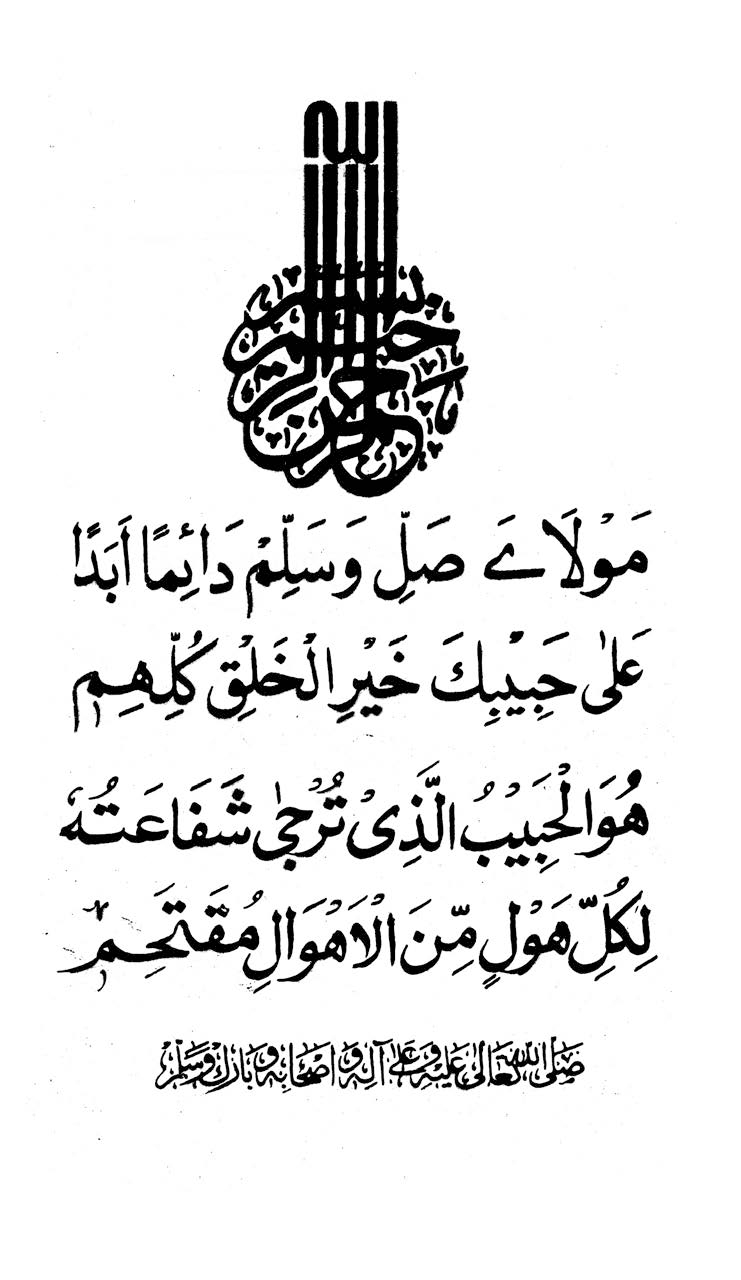 بسم الله الرحمن الرحيم
مَوْلَاىَ صَلِّ وَسَلِّمْ دَائِمًا أَبَدًا
عَلٰى حَبِيْبِكَ خَيْرِ الْخَلْقِ كُلِّهِمِ
هُوَ الْحَبِيْبُ الَّذِىْ تُرْجٰى شَفَاعَتُهٗ
لِكُلِّ هَوْلٍ مِّنَ الْاَهْوَالِ مُقْتَحِمِ
صَلَّى اللّٰهُ تَعَالٰى عَلَيْهِ وَعَلٰى آلِهٖ وَاَصْحَابِهٖ وَبَارَكَ وَسَلَّمَ